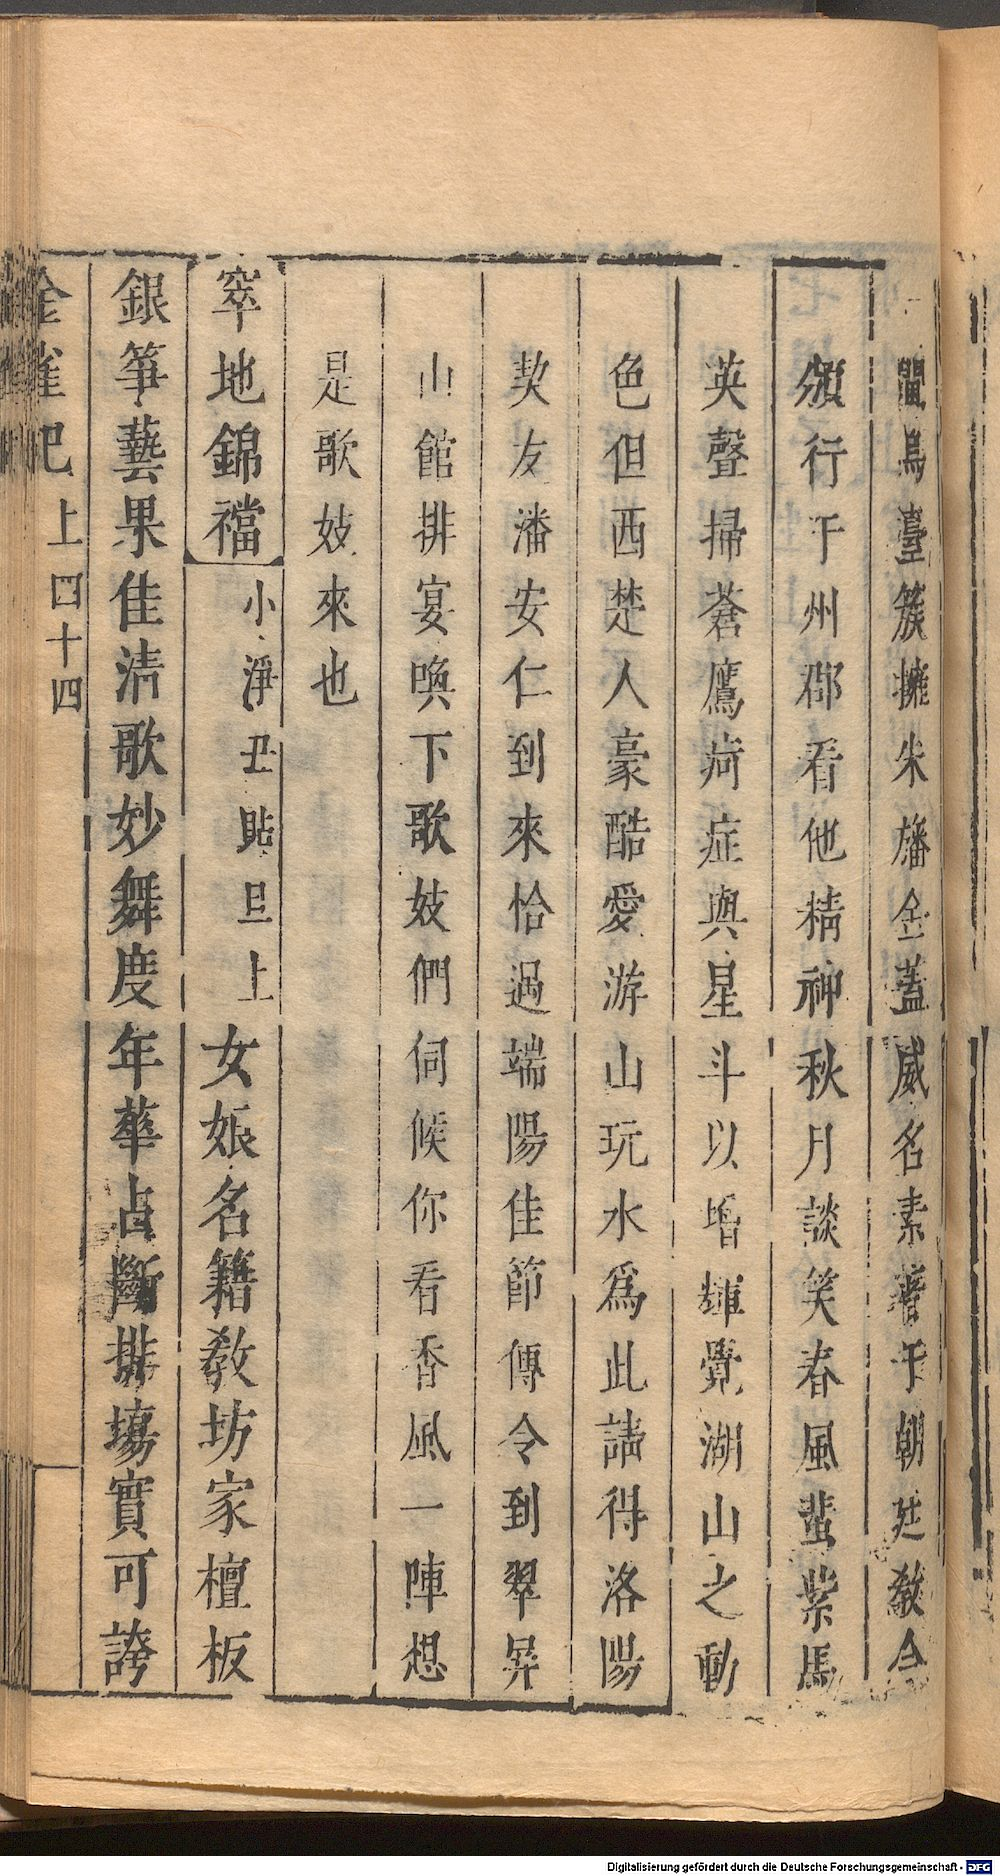 烏臺簇擁朱旛金蓋威名素著于朝廷教令
頒行于州郡看他精神秋月談笑春風蜚紫馬
英聲掃蒼鷹疴症與星斗以增輝覺湖山之動
色但西楚人豪酷愛游山玩水爲此請得洛陽
契友潘安仁到來恰過端陽佳節傳令到翠屏
山館排宴喚下歌妓們伺候你看香風一陣想
是歌妓來也
窣地錦襠 小淨丑貼旦上 女娘名籍教坊家檀板
銀箏藝果佳淸歌妙舞度年華占斷排塲實可誇
金雀記 上 四十四
Digitalisierung gefördert durch die Deutsche Forschungsgemeinschaft - DFG